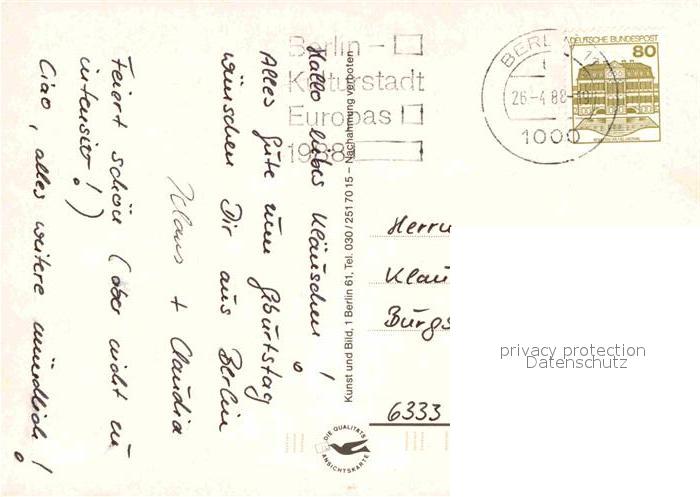 Hallo liebes Kläuschen!
Alles Gute zum Geburtstag
wünschen Dir aus Berlin
Klaus + Claudia
Feiert schön (aber nicht zu
intensiv!)
Ciao, alles weitere mündlich!
Berlin –
Kulturstadt
Europas
1988
Kunst und Bild, 1 Berlin 61, Tel. 030/251 70 15 – Nachahmung verboten
BERLIN 12
26-4.88
1000
DEUTSCHE BUNDESPOST
80
Herrn
Klau
Burgs
6333
DIE QUALITÄTS
ANSICHTSKARTE
privacy protection
Datenschutz